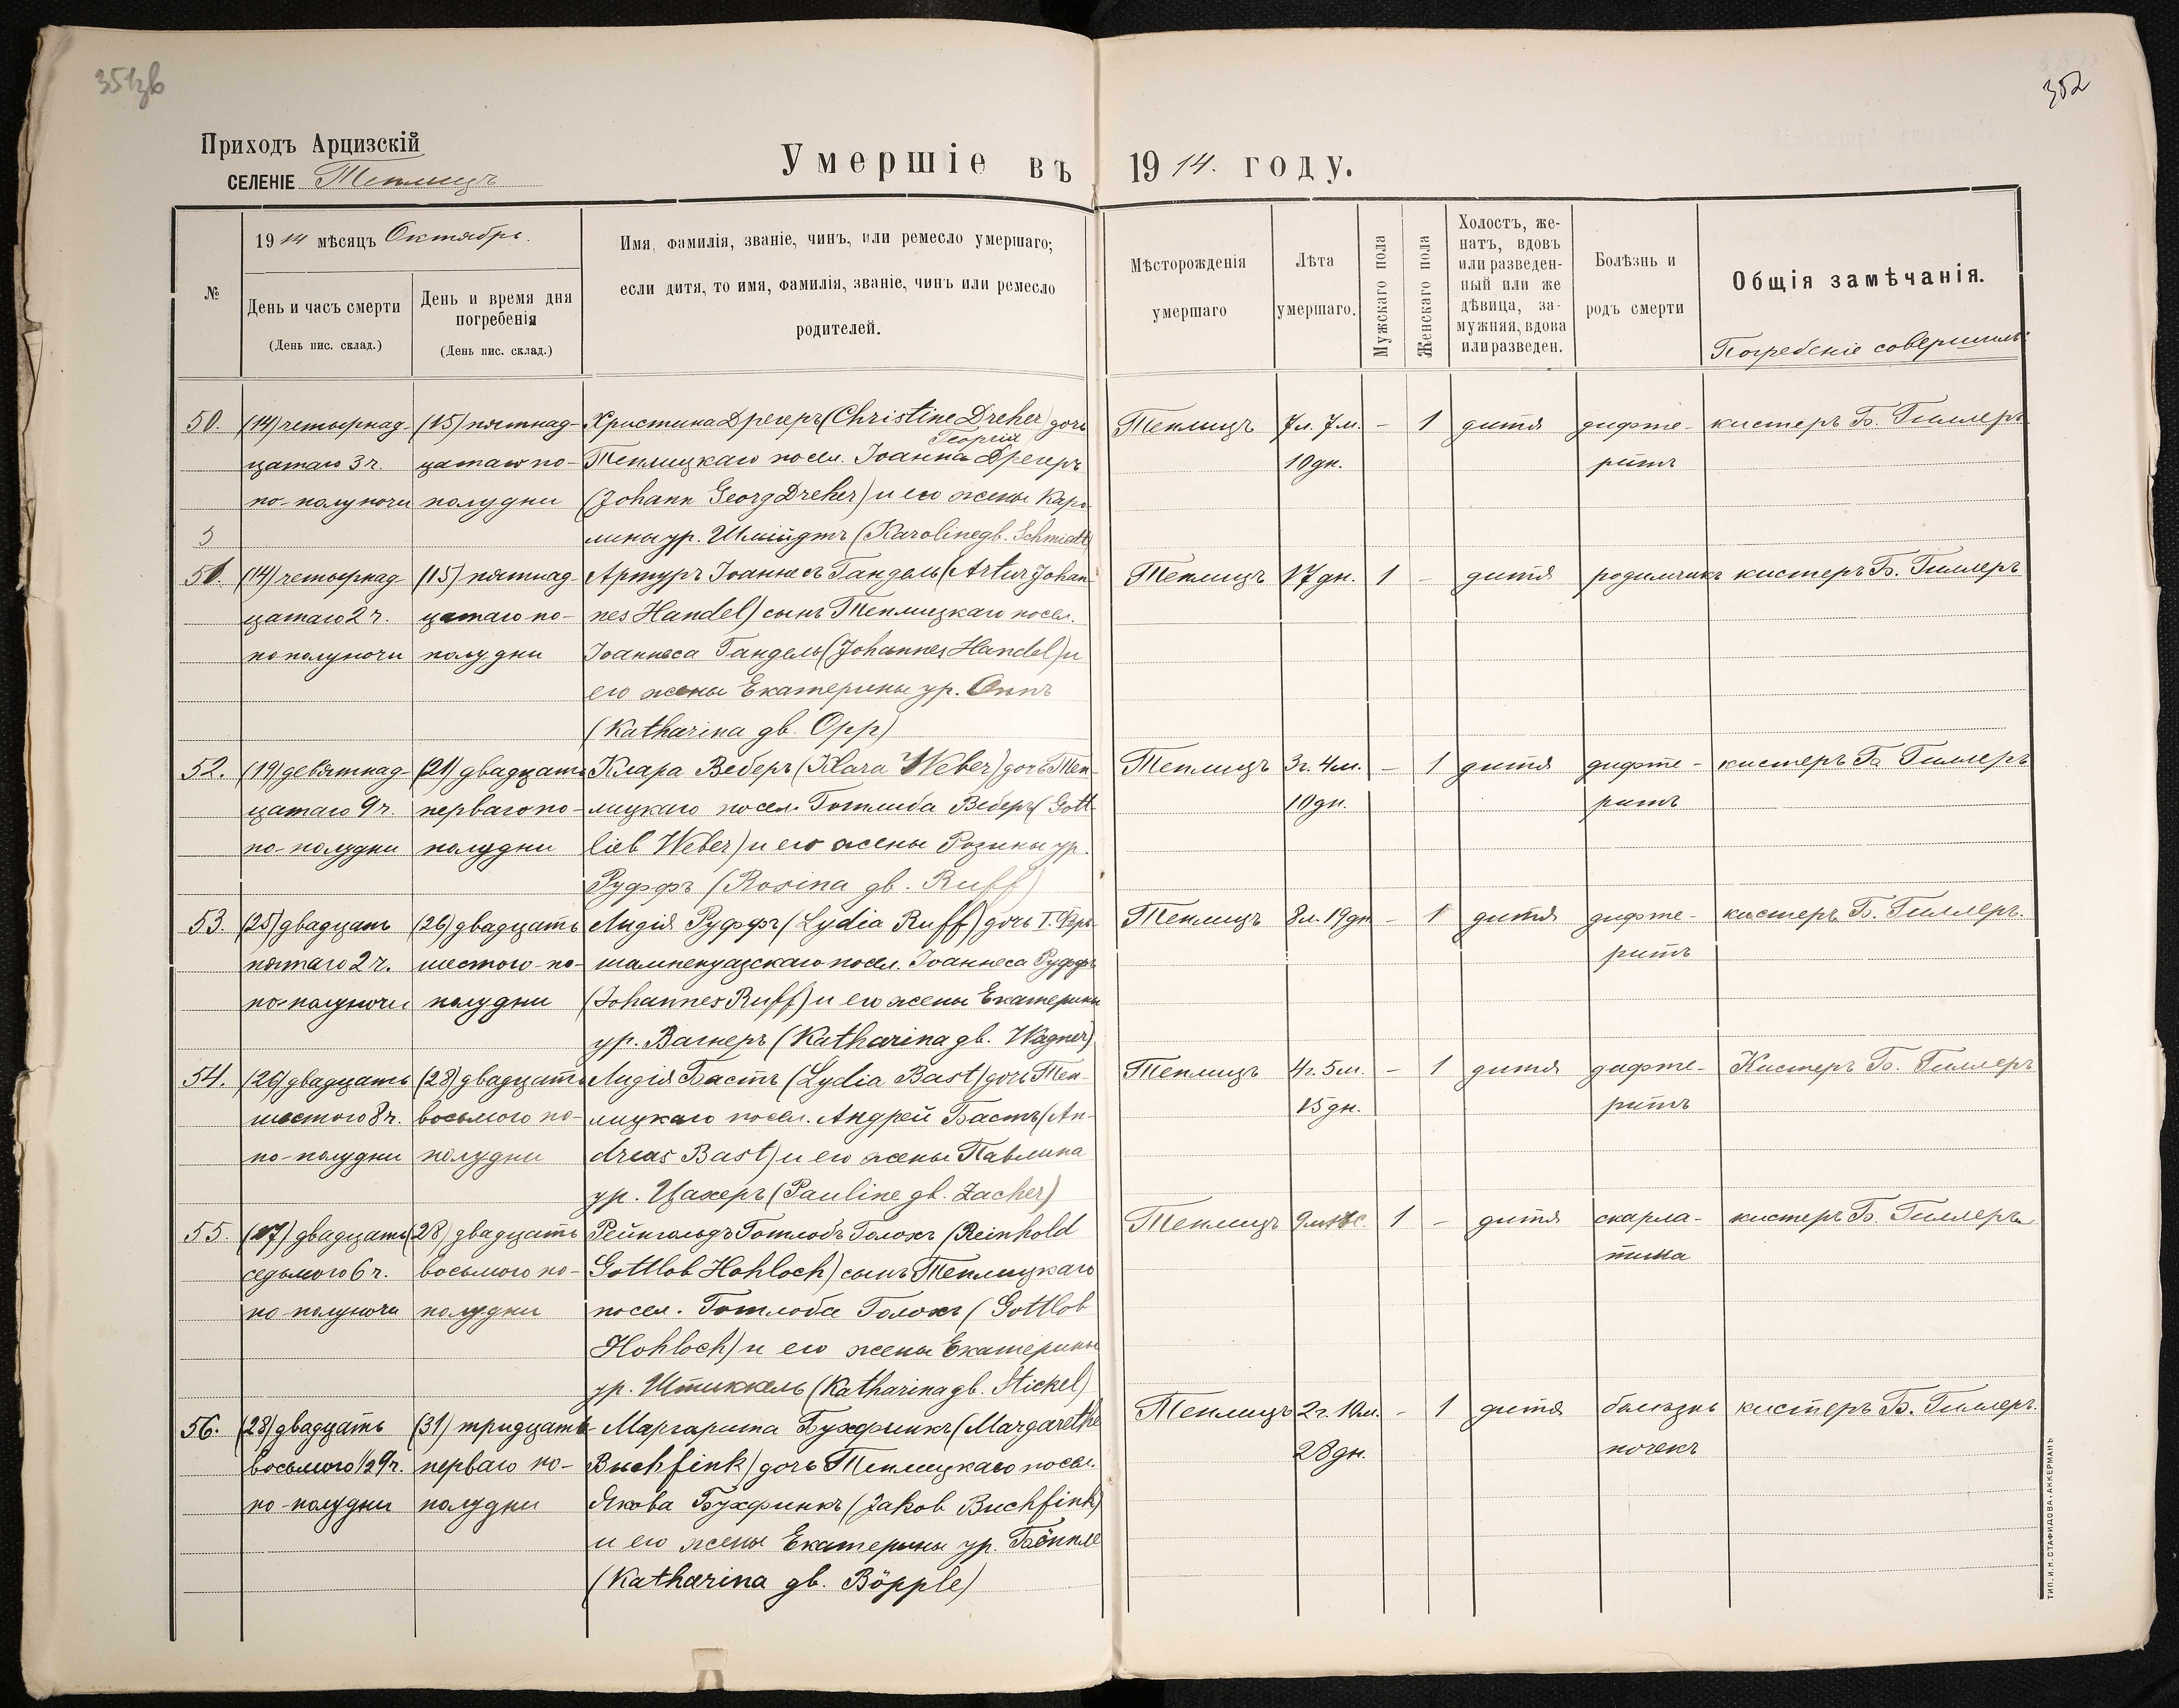 351зв
352
Приходъ Арцизскій
СЕЛЕНІЕ Теплицъ
Умершіе въ 1914. году.
№
1914 мѣсяцъ Октябрь.
День и часъ смерти
(День пис. склад.)
День и время дня
погребенія
(День пис. склад.)
Имя, фамилія, званіе, чинъ, или ремесло умершаго;
если дитя, то имя, фамилія, званіе, чинъ или ремесло
родителей.
Мѣсторожденія
умершаго
Лѣта
умершаго.
Мужскаго пола
Женскаго пола
Холостъ, же-
натъ, вдовъ
или разведен-
ный или же
дѣвица, за-
мужняя, вдова
или разведен.
Болѣзнь и
родъ смерти
Общія замѣчанія.
Погребеніе совершилъ:
50. (14) четырнад- (15) пятнад- Христина Дрегеръ (Christine Dreher) дочь Теплицъ 7л. 7м. - 1 дитя дифте- кистеръ Б. Гиллеръ
Георгія
цатаго 3 ч. цатаго по- Теплицкаго посел. Іоанна Дрегеръ 10 дн. ритъ
по-полуночи полудни (Johann Georg Dreher) и его жены Каро-
лины ур. Шмидтъ (Karoline gb. Schmidt)
51. (14) четырнад- (15) пятнад- Артуръ Іоаннесъ Гандель (Artur Johan- Теплицъ 17 дн. 1 - дитя родимчикъ кистеръ Б. Гиллеръ
цатаго 2 ч. цатаго по- nes Handel) сынъ Теплицкаго посел.
по полуночи полудни Іоаннеса Гандель (Johannes Handel) и
его жены Екатерины ур. Оппъ
(Katharina gb. Opp)
52. (19) девятнад- (21) двадцать Клара Веберъ (Klara Weber) дочь Теп- Теплицъ 3г. 4м. - 1 дитя дифте- кистеръ Б. Гиллеръ
цатаго 9 ч. перваго по- лицкаго посел. Готлиба Веберъ (Gott- 10 дн. ритъ
по-полудни полудни lieb Weber) и его жены Розины ур.
Руффъ (Rosina gb. Ruff)
53. (25) двадцать (26) двадцать Лидія Руффъ (Lydia Ruff) дочь I. Фер- Теплицъ 8л. 19дн. - 1 дитя дифте- кистеръ Б. Гиллеръ.
пятаго 2 ч. шестого по- шампенуазскаго посел. Іоаннеса Руффъ ритъ
по-полуночи полудни (Johannes Ruff) и его жены Екатерины
ур. Вагнеръ (Katharina gb. Wagner)
54. (26) двадцать (28) двадцать Лидія Бастъ (Lydia Bast) дочь Теп- Теплицъ 4г. 5м. - 1 дитя дифте- Кистеръ Б. Гиллеръ
шестого 8 ч. восьмого по- лицкаго посел. Андрей Бастъ (An- 15 дн. ритъ
по-полудни полудни dreas Bast) и его жены Павлина
ур. Цахеръ (Pauline gb. Zacher)
55. (27) двадцать (28) двадцать Рейнгольдъ Готлобъ Голохъ (Reinhold Теплицъ 1 - дитя скарла- кистеръ Б. Гиллеръ
седьмого 6 ч. восьмого по- Gottlob Hohloch) сынъ Теплицкаго тина
по-полуночи полудни посел. Готлоба Голохъ (Gottlob
Hohloch) и его жены Екатерины
ур. Штиккель (Katharina gb. Stickel)
56. (28) двадцать (31) тридцать Маргарита Бухфинкъ (Margarethe Теплицъ 2г. 10м. - 1 дитя болѣзнь кистеръ Б. Гиллеръ.
восьмого ½9 ч. перваго по- Buchfink) дочь Теплицкаго посел. 28 дн. почекъ
по-полудни полудни Якова Бухфинкъ (Jakob Buchfink)
и его жены Екатерины ур. Бёппле
(Katharina gb. Böpple)
ТИП. И. Н. СТАФИДОВА, АККЕРМАНЪ